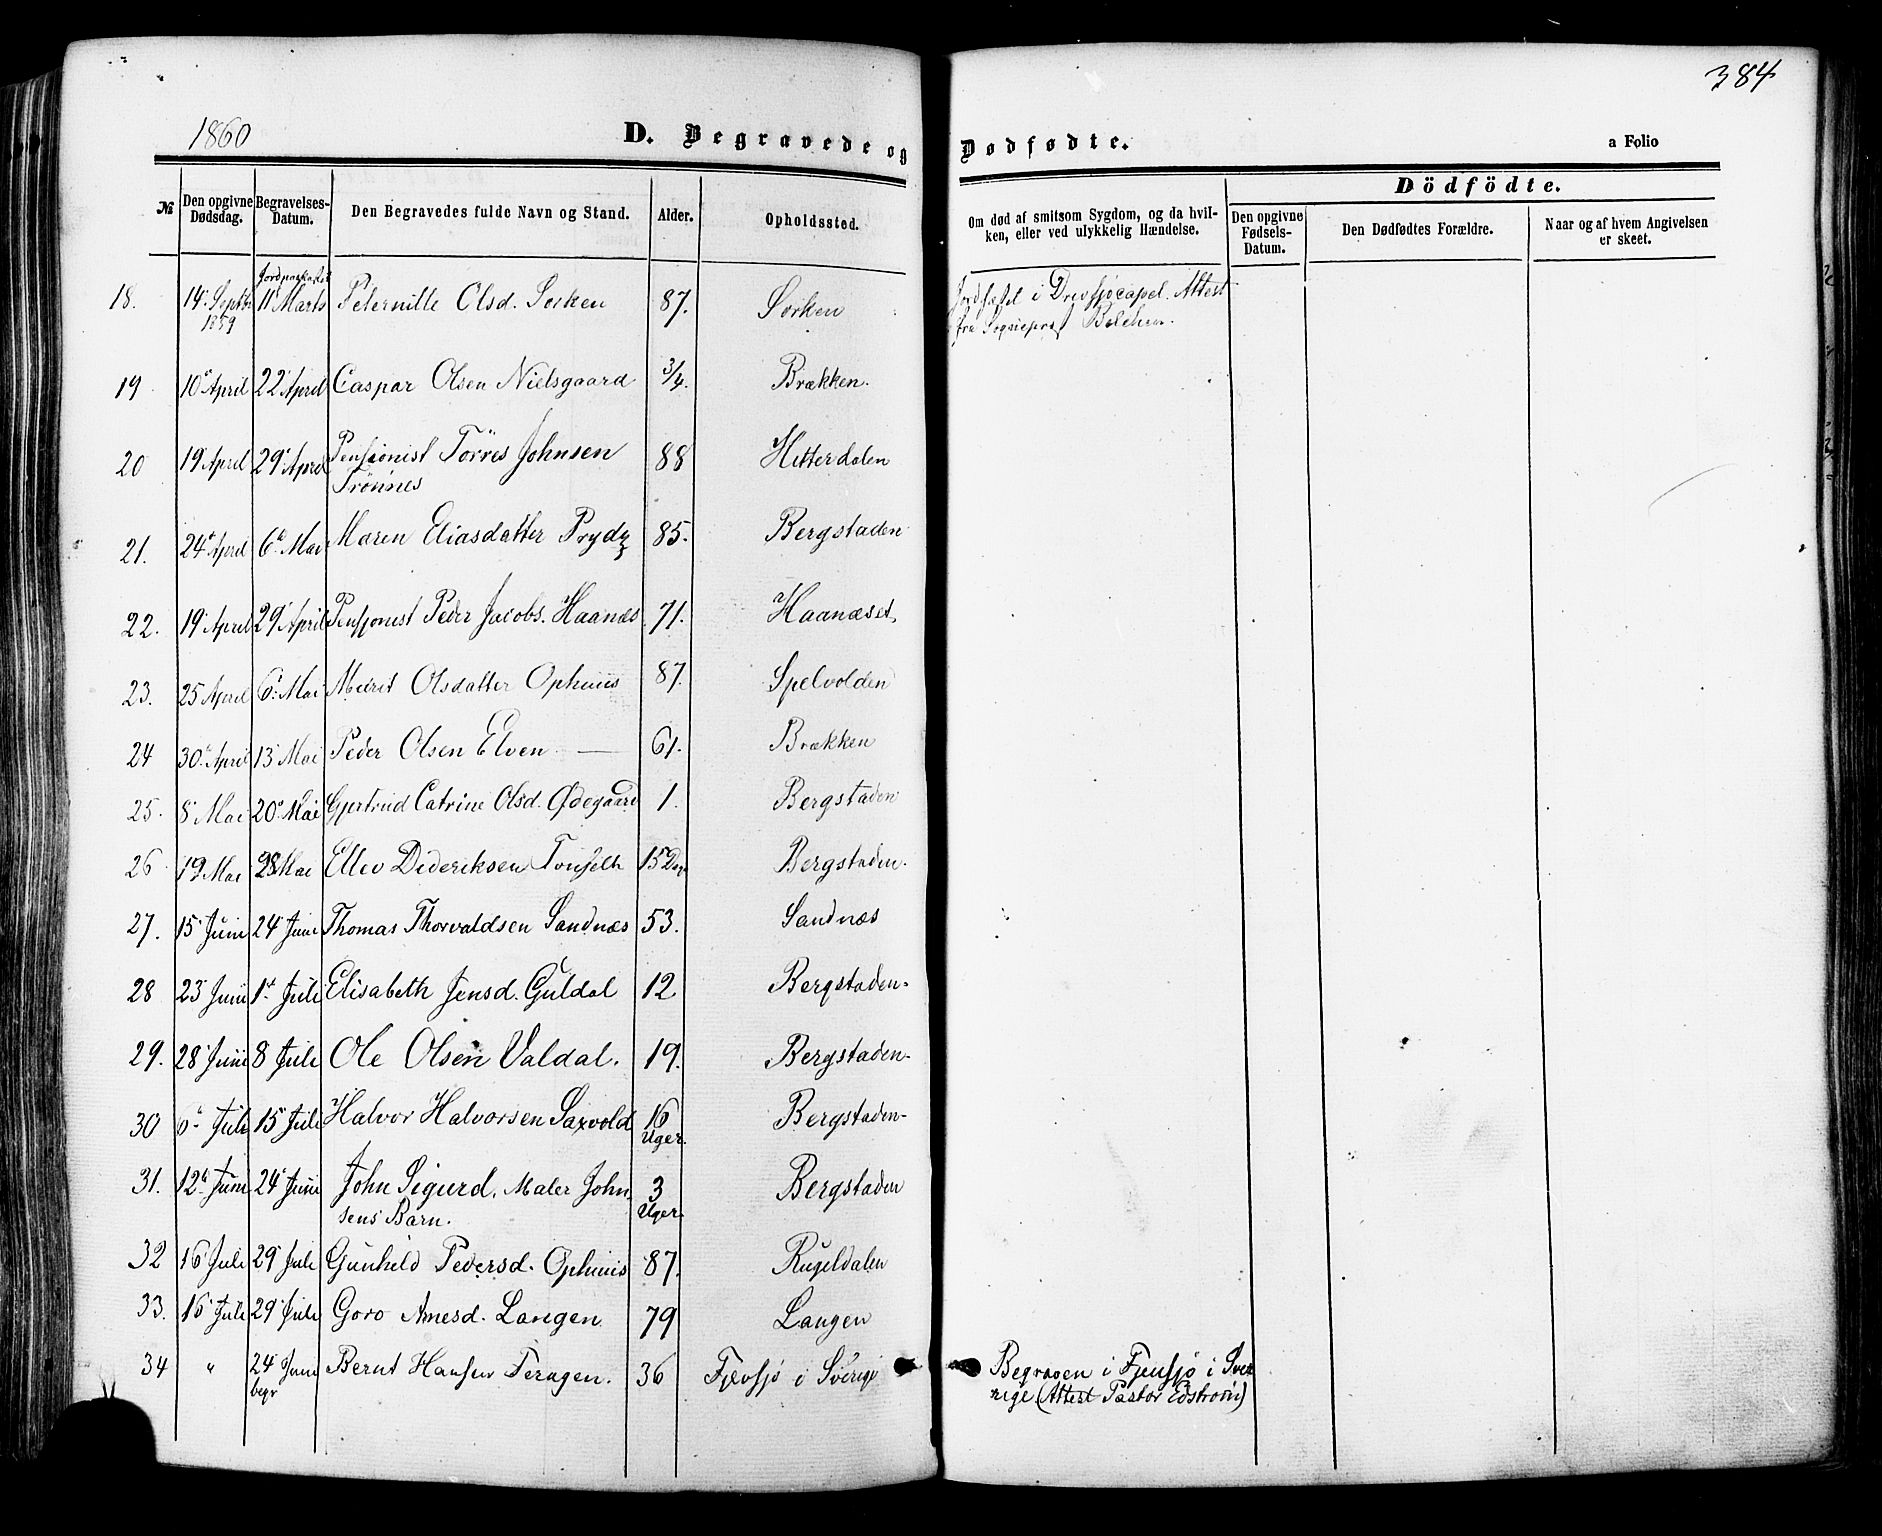 384
1860
D. Begravede og Dødfødte.
a Folio
Dödfödte.
№
Den opgivne Dødsdag.
Begravelses-Datum.
Den Begravedes fulde Navn og Stand.
Alder.
Opholdssted.
Om død af smitsom Sygdom, og da hvilken, eller ved ulykkelig Hændelse.
Den opgivne Fødsels-Datum.
Den Dødfødtes Forældre.
Naar og af hvem Angivelsen er skeet.
18. 14. Septbr 1859 Jordpaakastet 11 Marts Peternille Olsd. Sorken 87. Sorken Jordfæstet i Drevsjøcapel. Attest
fra Sognepræst
19 10de April 22 April Caspar Olsen Nielsgaard 3/4. Brækken.
20 19 April 29 April Pensionist Törres Johnsen 88 Hitterdalen
Trönnes
21. 24de April 6te Mai Maren Eliasdatter Prydz 85. Bergstaden
22. 19 April 29 April Pensjonist Peder Jacobs. Haanæs 71. Haanæset
23. 25 April 6. Mai Merit Olsdatter Ophuus 87. Spelvolden
24 30te April 13 Mai Peder Olsen Elven — 61. Brækken
25. 8 Mai 20de Mai Gjertrud Catrine Olsd. Ødegaard 1. Bergstaden
26 19 Mai 28 Mai Ellev Dideriksen Tonseth 15 Dage Bergstaden.
27. 15 Juni 24 Juni Thomas Thorvaldsen Sandnæs 53. Sandnæs
28 23 Juni 1st Juli Elisabeth Jensd. Guldal 12 Bergstaden.
29. 28 Juni 8 Juli Ole Olsen Valdal. 19. Bergstaden
30 6te Juli 15 Juli Halvor Halvorsen Saxvold 16 Bergstaden
Uger.
31. 12te Juni 24 Juni John Sigurd, Maler John- 3 Bergstaden
sens Barn. Uger.
32 16 Juli 29 Juli Gunhild Pedersd. Ophuus 87. Rugeldalen
33. 16 Juli 29 Juli Goro Arnesd. Langen 79 Langen
34 " 24 Juni Bernt Hansen Feragen. 36 Fjevsjø i Sverige Begraven i Fjensjø i Sver-
begr rige (Attest Pastor Edstrøm)